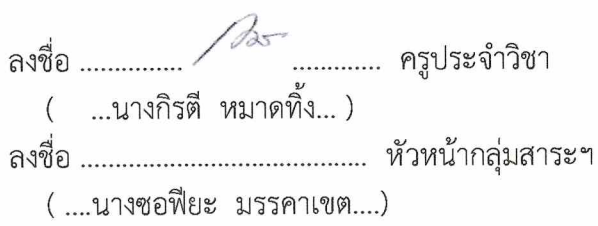 ลงชื่อ ............... ............. ครูประจำวิชา
( ...นางกิรตี หมาดทิ้ง... )
ลงชื่อ ......................................... หัวหน้ากลุ่มสาระฯ
( ....นางซอฟียะ มรรคาเขต....)